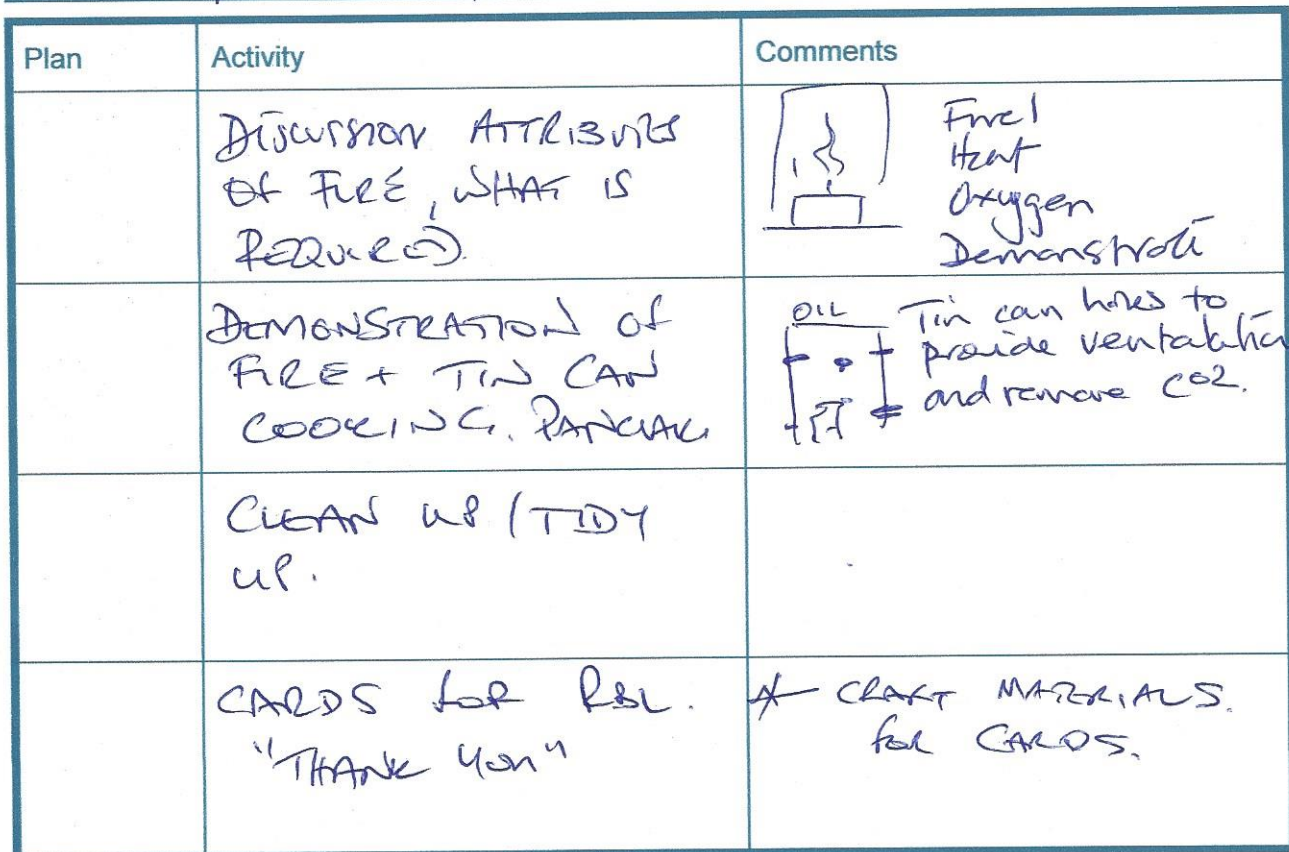 Plan
Activity
Comments
DISCUSSION ATTRIBUTES
OF FIRE, WHAT IS
REQUIRED.
Fuel
Heat
Oxygen
Demonstrate
DEMONSTRATION OF
FIRE + TIN CAN
COOKING. PANCAKE
OIL
Tin can holes to
provide ventalation
and remove CO2.
CLEAN UP / TIDY
UP.
CARDS FOR RBL.
"THANK YOU"
CRAFT MATERIALS.
FOR CARDS.